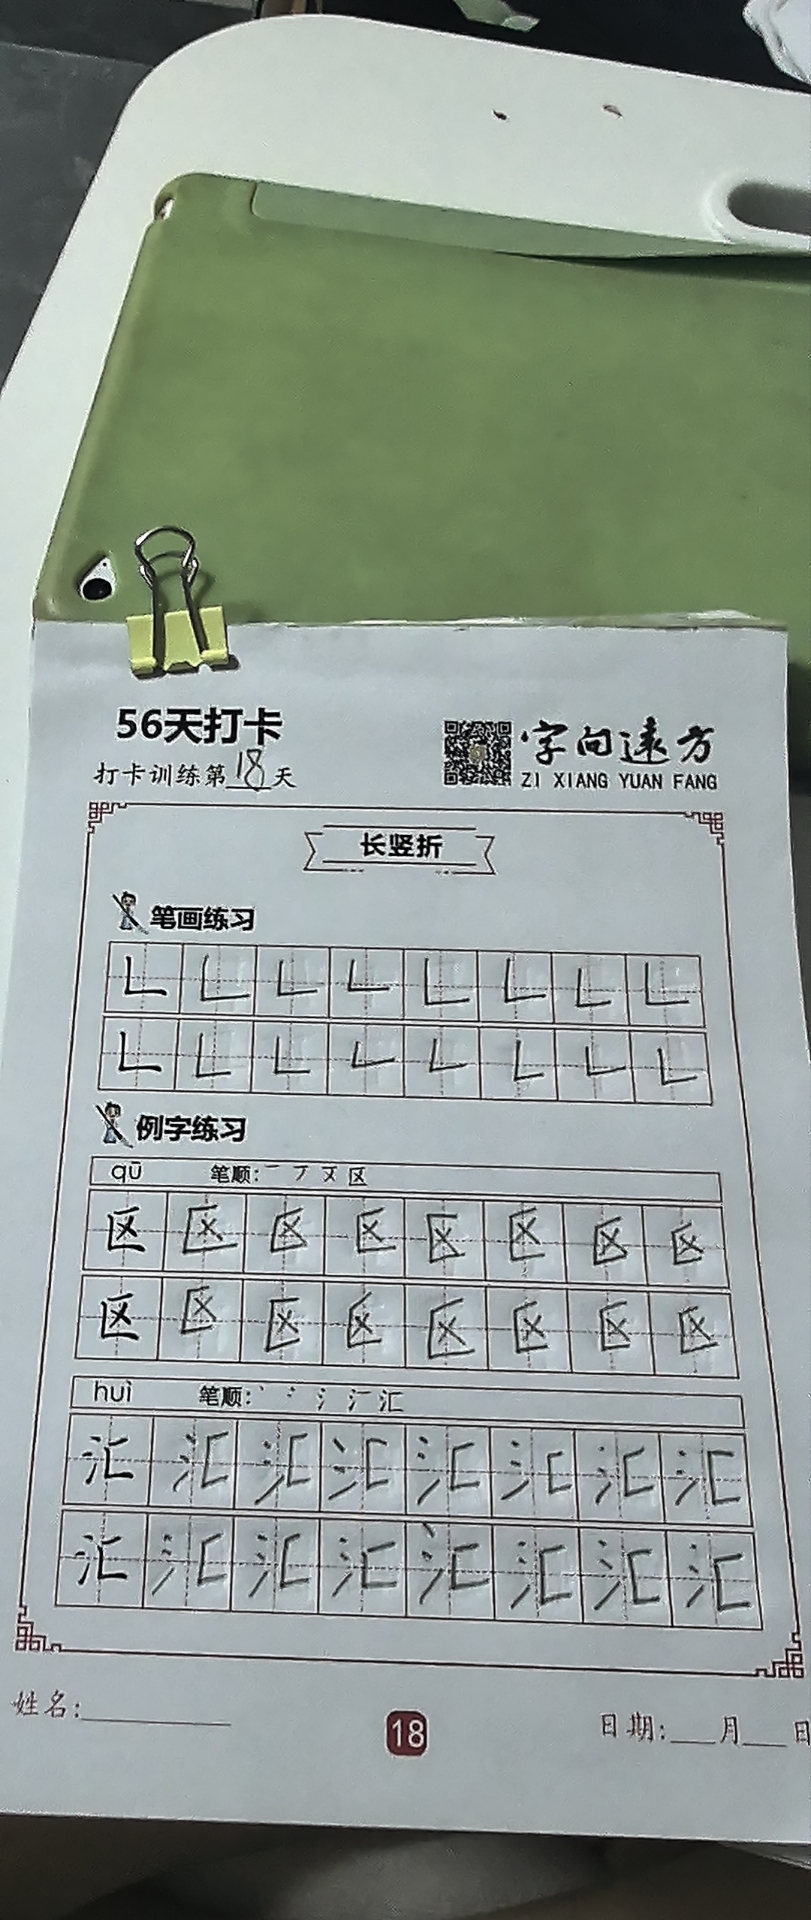 56天打卡
字向远方
打卡训练第18天
ZI XIANG YUAN FANG
长竖折
笔画练习
例字练习
qū 笔顺: 一 フ 又 区
区 区 区 区 区 区 区 区
区 区 区 区 区 区 区 区
huì 笔顺: 丶 冫 氵 汇
汇 汇 汇 汇 汇 汇 汇 汇
汇 汇 汇 汇 汇 汇 汇 汇
姓名:
18
日期: 月 日